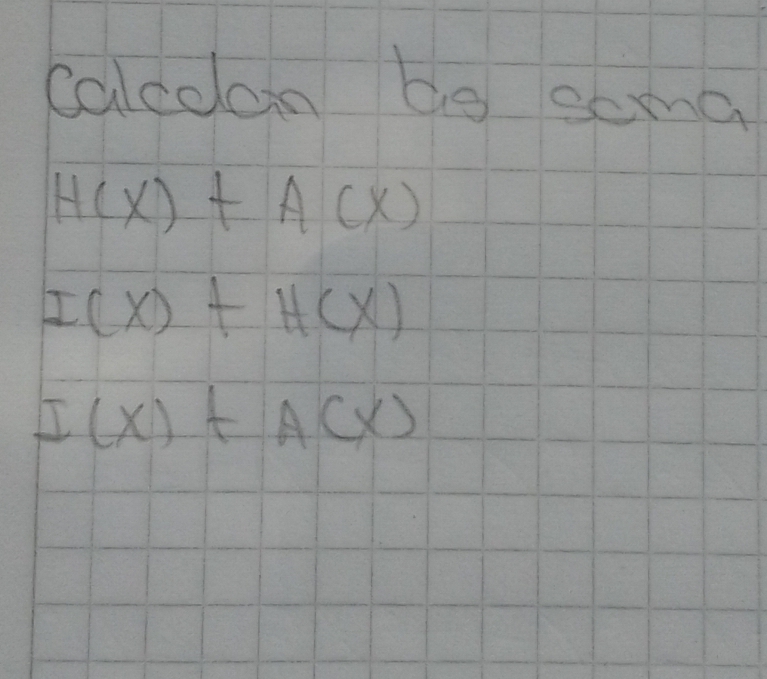 Calcolan las soma
H(X) + A(X)
I(X) + H(X)
I(X) + A(X)